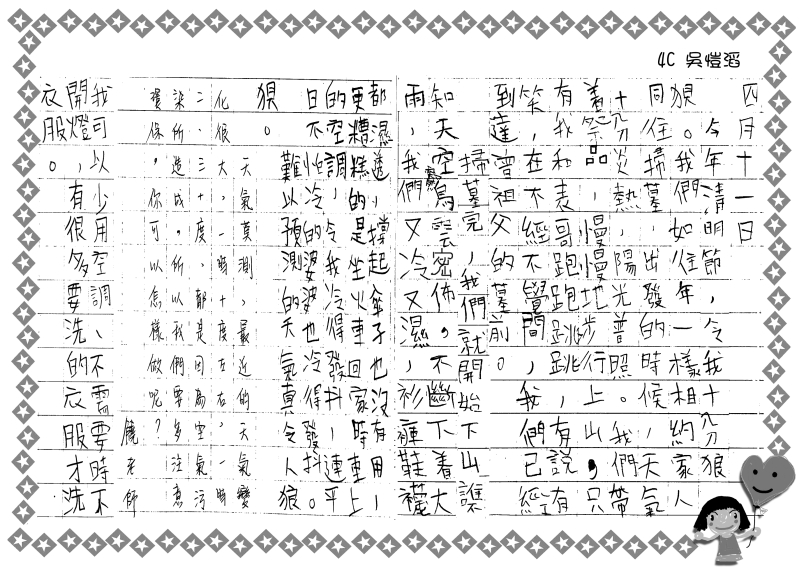 4C 吳愷滔
四月十一日
今年清明節，令我十分狼
狽。我們如往年一樣相約家人
同往掃墓，出發的時候，天氣
十分炎熱，陽光普照。我們帶
着祭品，慢慢地步行上山，只
有我和表哥跑跑跳跳，有說有
笑，在不經不覺間，我們已經
到達曾祖父的墓前。
掃墓完，我們就開始下山，誰
知天空烏雲密佈，不斷下着大
雨，我們又冷又濕，衫褲鞋襪
都濕透，撐起傘子也沒有用，
更糟糕的是坐火車回家時車上
的空調，令我冷得發抖，連平
日不怕冷的婆婆也冷得發抖。
難以預測的天氣真令人狼
狽。
天氣莫測，最近的天氣變
化很大，一時十度左右，一時
二、三十度，都是因為空氣污
染所造成。所以我們要多注意
環保，你可以怎樣做呢？饒老師
我可以少用空調、不需要時不
開燈，有很多要洗的衣服才洗
衣服。